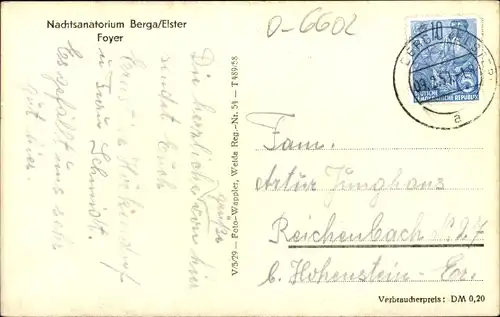 Nachtsanatorium Berga/Elster
Foyer
O-6602
10
DEUTSCHE
DEMOKRATISCHE REPUBLIK
5
a
Die herzlichsten
Grüße
von hier
sendet Euch
u. Frau Schmidt.
Es gefällt uns sehr
gut hier.
V/5/29 – Foto-Wappler, Weida Reg.-Nr. 54 – T 489/58
Fam.
Artur Junghans
Reichenbach Nr. 27
b. Hohenstein-Er.
Verbraucherpreis : DM 0,20